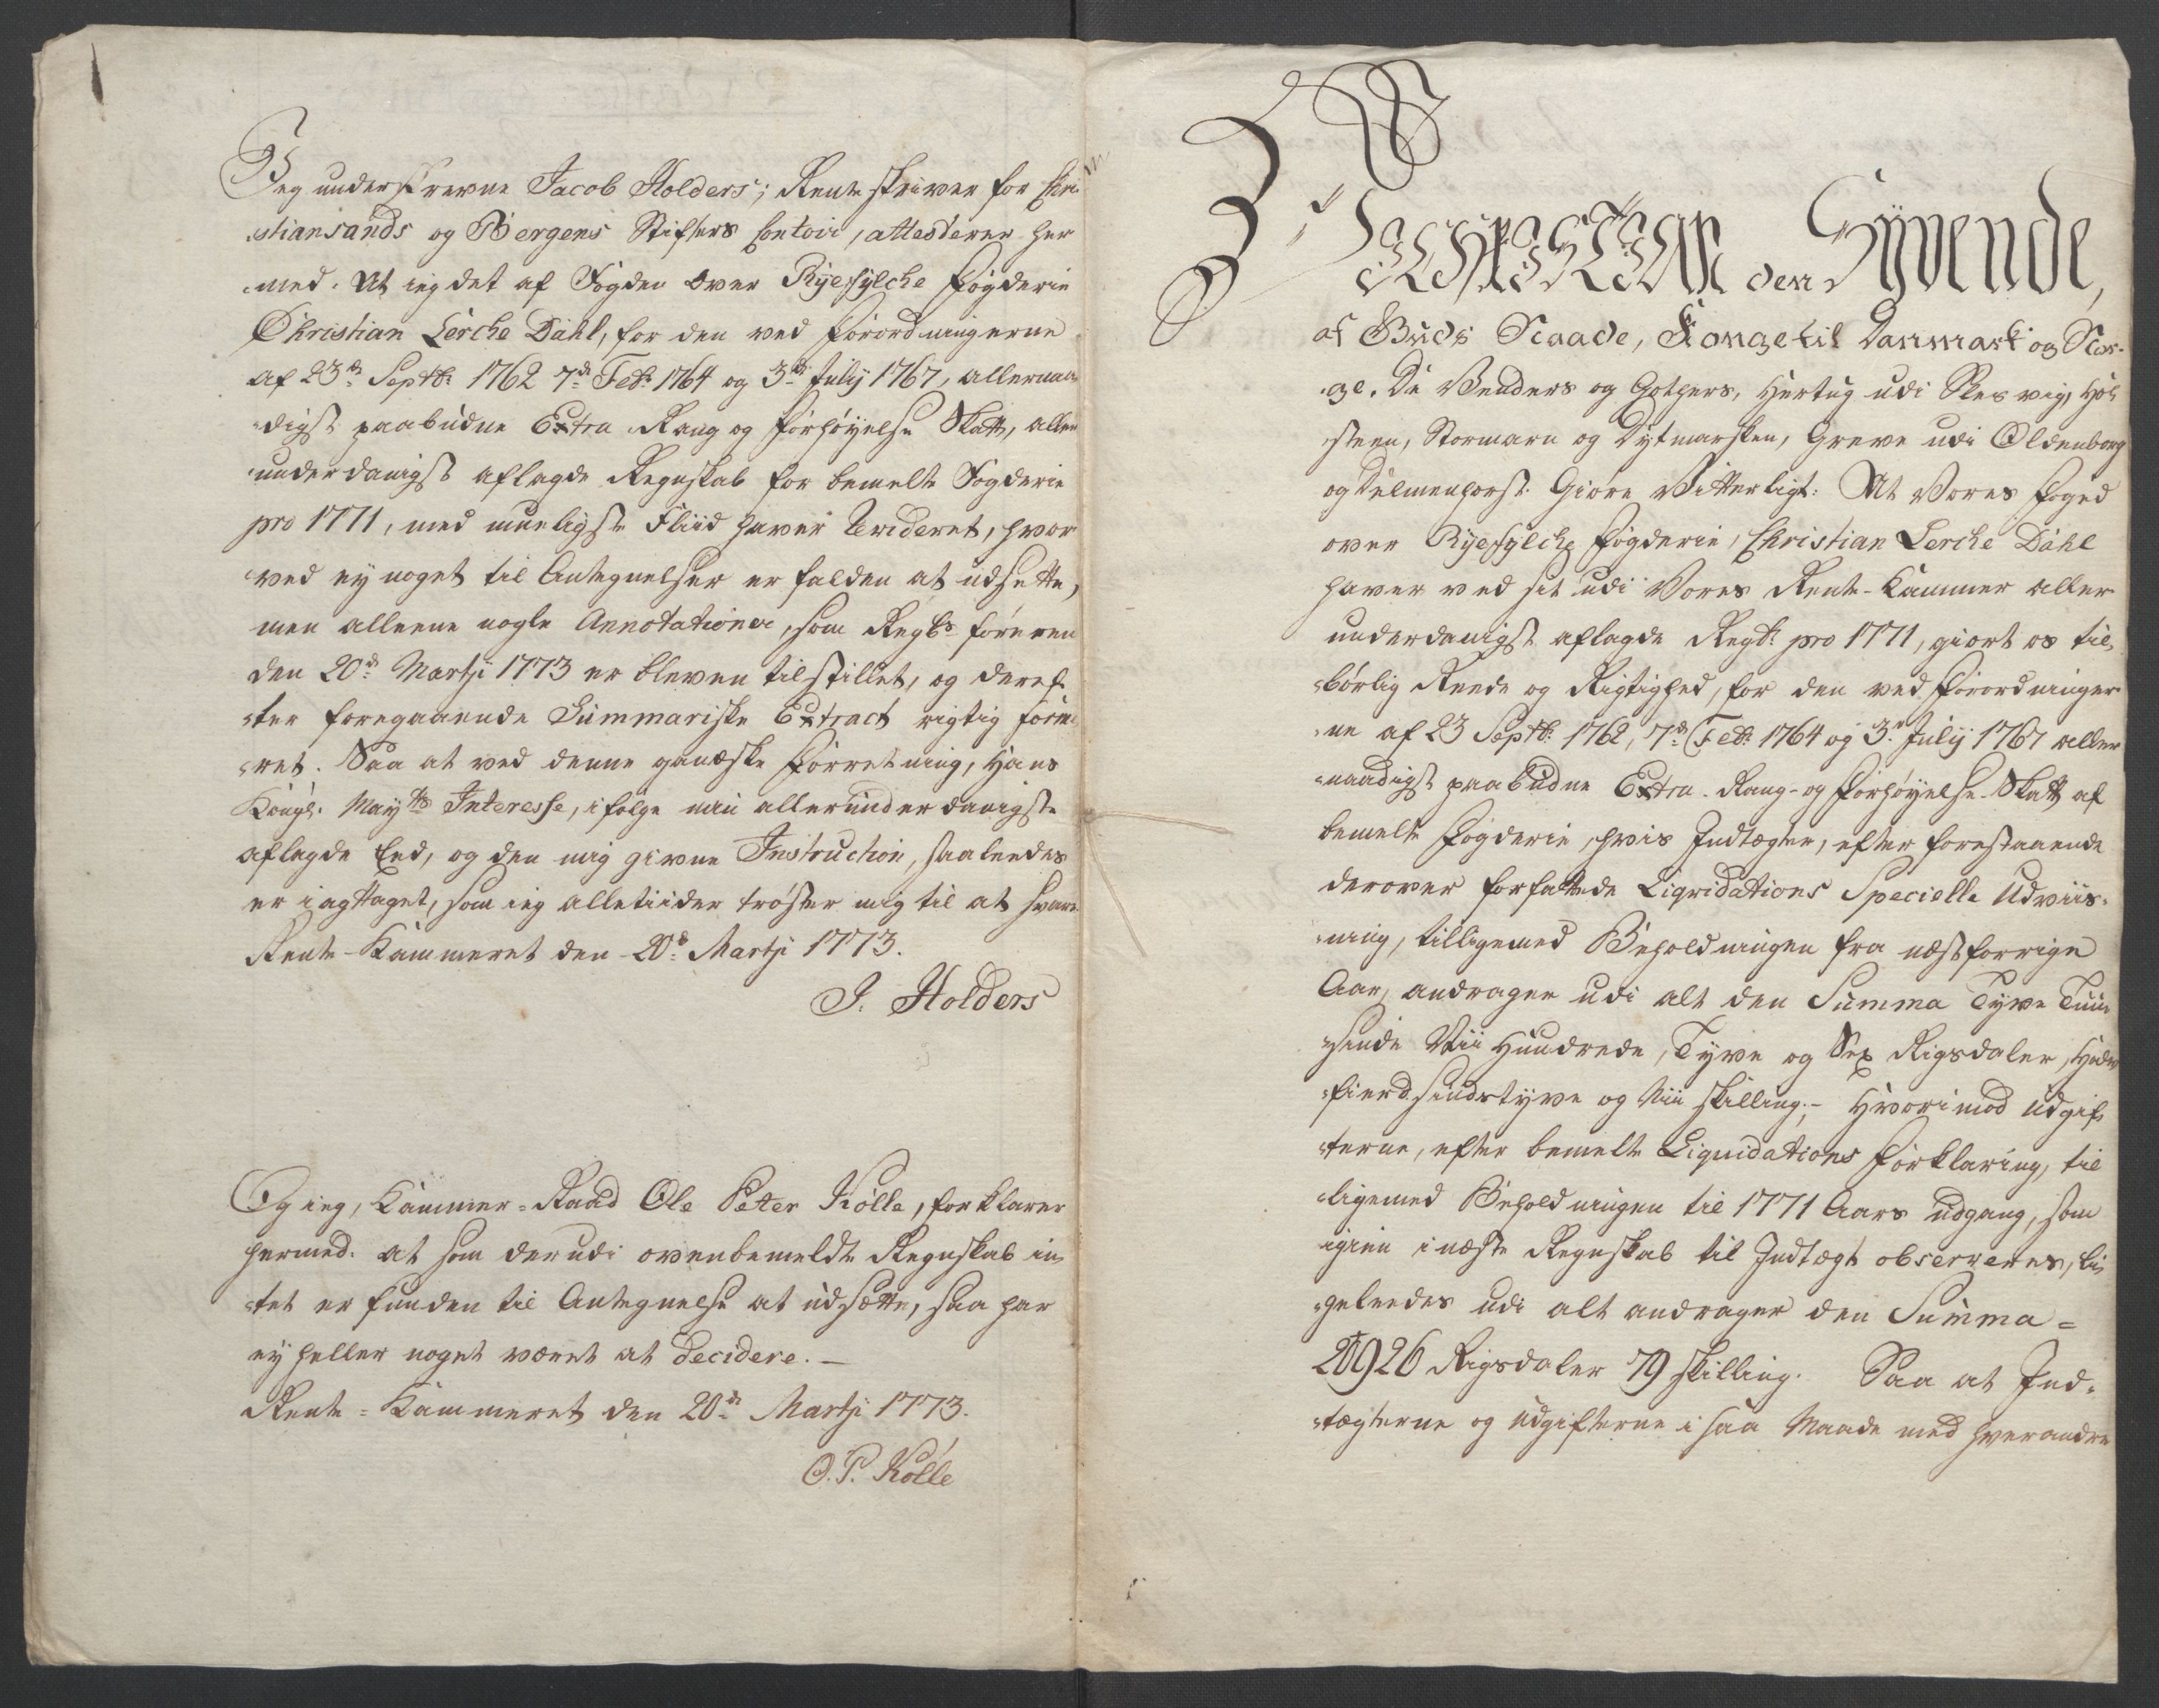 Jeg underskrevne Jacob Holders; Rente skriver for Chri
stiansands og Bergens Stifters Contoir, attesterer her
med. At ieg det af Fogden over Ryefylche Fogderie
Christian Lerche Dahl, for den ved Forordningerne
af 23de Septbr 1762 7de Febr 1764 og 3die July 1767, allernaa
digst paabudne Extra Rang og Forhøyelse Skatt, aller
underdanigst aflagde Regnskab for bemelte Fogderie
pro 1771, med mueligste Fliid haver Revideret, hvor
ved ey noget til Antegnelser er falden at udsette,
men alleene nogle Annotationer, som Regbs føreren
den 20de Martji 1773 er bleven tilstillet, og deref
ter foregaaende Summariske Extract rigtig form
eret. Saa at ved denne gandske Forretning, Hans
Kongl. Mayts Interesse, ifølge min allerunderdanigste
aflagde Eed, og den mig givne Instruction, saaleedes
er iagttaget, som ieg alletiider trøster mig til at svare
Rente-Kammeret den 20de Martji 1773.
J. Holders
Og ieg, Kammer-Raad Ole Peter Kølle, forklarer
hermed. at som der udi ovenbemeldte Regnskab in
tet er funden til Antegnelse at udsætte, saa har
ey heller noget været at decidere.
Rente-Kammeret den 20de Martji 1773.
O. P. Kølle
Wi
CHRISTIAN den Syvende,
af Guds Naade, Konge til Danmark og Nor-
ge. De Wenders og Gothers, Hertug udi Slesvig, Hol
steen, Stormarn og Dytmarsken, Greve udi Oldenborg
og Delmenhorst. Giøre Vitterligt: At Vores Foged
over Ryefylche Fogderie, Christian Lerche Dahl
haver ved sit udi Vores Rente-Kammer aller
underdanigst aflagde Regb: pro 1771, giort os til
børlig Reede og Rigtighed, for den ved Forordninger
ne af 23 Septbr 1762, 7de Febr 1764 og 3die July 1767 aller
naadigst paabudne Extra Rang- og Forhøyelse Skatt af
bemelte Fogderie, hvis Indtægter, efter forestaaende
derover forfattede Liqvidations Specielle Udviis-
ning, tilligemed Beholdningen fra næstforrige
Aar, andrager udi alt den Summa Tyve Tuu
sinde Nii Hundrede, Tyve og Sex Rigsdaler, Halv
fierdsindstyve og Nii skilling;- Hvorimod udgif
terne, efter bemelte Liqvidations Forklaring, til
ligemed Beholdningen til 1771 Aars udgang, som
igien i næste Regnskab til Indtægt observeres, li
geleedes udi alt andrager den Summa=
20926 Rigsdaler 79 skilling. Saa at Ind-
tægterne og udgifterne i saa Maade med hverandre